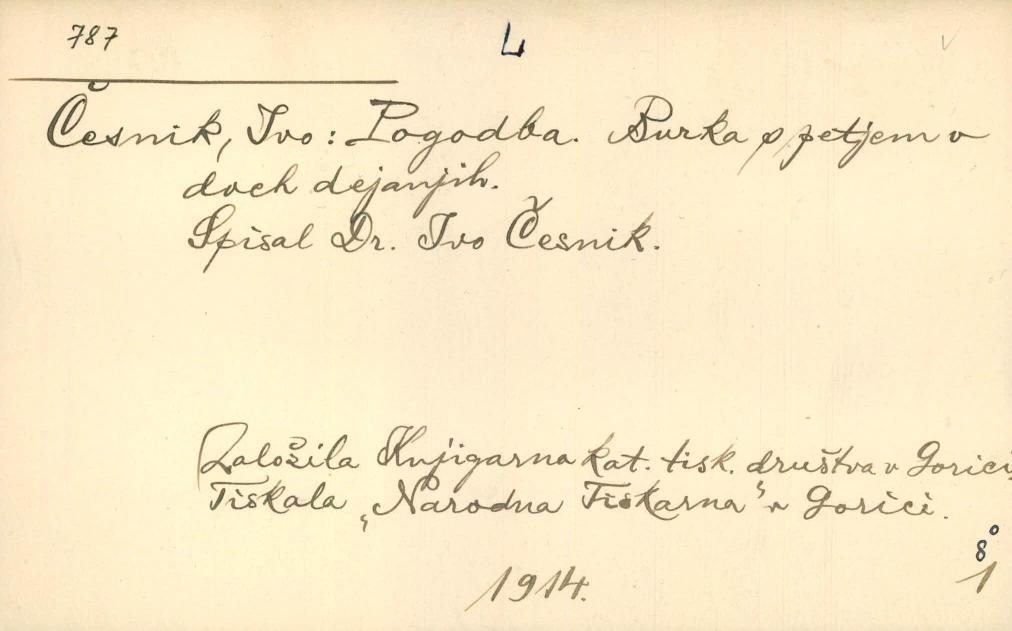 787
L
Česnik, Ivo: Pogodba. Burka s petjem v
dveh dejanjih.
Spisal Dr. Ivo Česnik.
Založila Knjigarna kat. tisk. društva v Gorici,
Tiskala „Narodna Tiskarna“ v Gorici.
8°
1914.
1